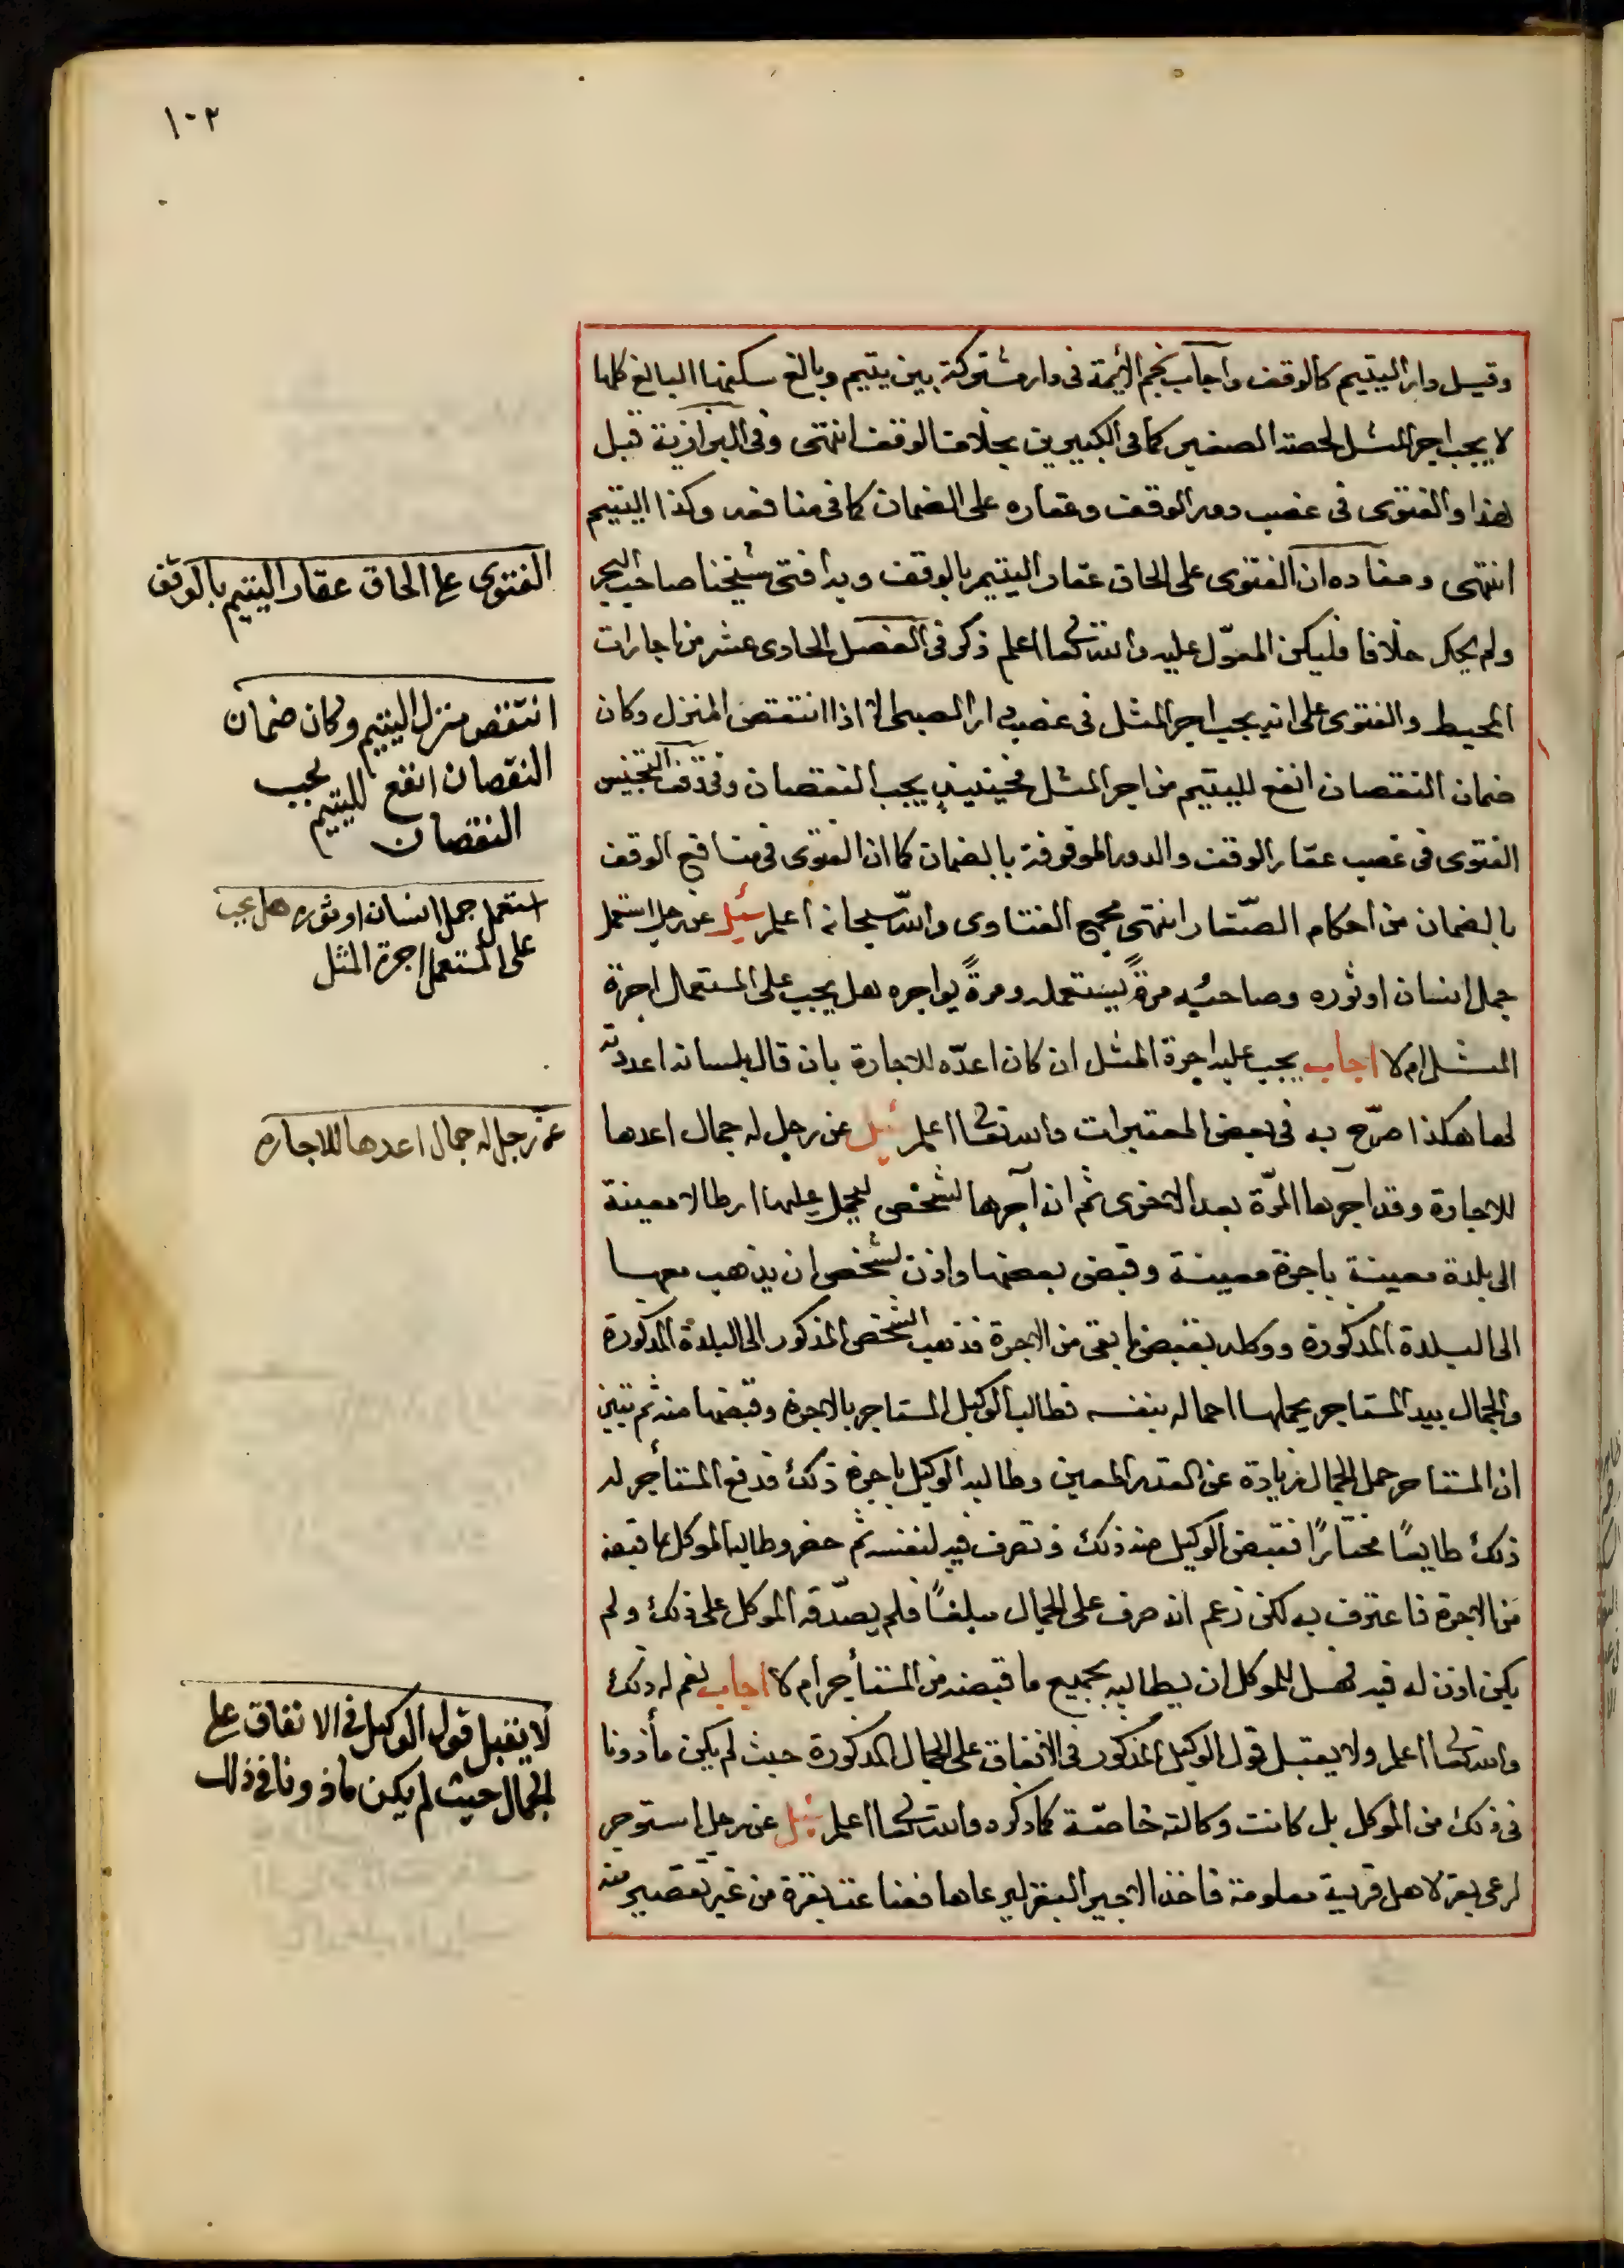 ١٠٢
وقيل دار اليتيم كالوقف واجاب نجم الائمة فى دار مشتركة بين يتيم وبالغ سكنها البالغ كلها
لا يجب اجر المثل لحصة الصغير كما فى الكبيرين بخلاف الوقف انتهى وفى البزازية قبل
هذا والفتوى فى غصب دور الوقف وعقاره على الضمان كما فى منافعه وكذا اليتيم
انتهى ومفاده ان الفتوى على الحاق عقار اليتيم بالوقف وبه افتى شيخنا صاحب البحر
ولم يحك خلافا فليكن المعوّل عليه والله تعالى اعلم ذكر فى الفصل الحادى عشر من اجارات
المحيط والفتوى على انه يجب اجر المثل فى غصب دار الصبى الا اذا انتقص المنزل وكان
ضمان النقصان انفع لليتيم من اجر المثل فحينيذٍ يجب النقصان وفى وقف التجنيس
الفتوى فى غصب عقار الوقف والدور الموقوفة بالضمان كما ان الفتوى فى منافع الوقف
بالضمان من احكام الصّغار انتهى مجمع الفتاوى والله سبحانه اعلم سئيل عن رجل استعمل
جمل انسان او ثوره وصاحبُه مرةً يستعمله ومرةً يواجره هل يجب على المستعمل اجرة
المثل ام لا اجاب يجب عليه اجرة المثل ان كان اعدّه للاجارة بان قال بلسانه اعددته
لها هكذا صرّح به فى بعض المعتبرات والله تعالى اعلم سئيل عن رجل له جمال اعدها
للاجارة وقد آجرها المرّة بعد الاخرى ثم ان آجرها لشخص ليحمل عليها ارطالا معينة
الى بلدة معينة باجرة معينة وقبض بعضها واذن لشخص ان يذهب معها
الى البلدة المذكورة ووكله بقبض ما بقى من الاجرة فذهب الشخص المذكور الى البلدة المذكورة
والجمال بيد المستاجر يحملها احماله بنفسه فطالب الوكيل المستاجر بالاجرة وقبضها منه ثم تبين
ان المستاجر حمل الجمال زيادة عن القدر المعين وطالبه الوكيل باجرة ذلك فدفع المستأجر له
ذلك طايعًا مختارًا فقبض الوكيل منه ذلك وتصرف فيه لنفسه ثم حضر وطالبه الموكل بما قبضه
من الاجرة فاعترف به لكن زعم انه صرف على الجمال مبلغًا فلم يصدّقه الموكل على ذلك ولم
يكن اذن له فيه فهل للموكل ان يطالبه بجميع ما قبضه من المستأجر ام لا اجاب نعم له ذلك
والله تعالى اعلم ولا يقبل قول الوكيل المذكور فى الانفاق على الجمال المذكورة حيث لم يكن مأذونا
فى ذلك من الموكل بل كانت وكالته خاصّة كما ذكره والله تعالى اعلم سئيل عن رجل استوجر
لرعى بقر لاهل قرية معلومة فاخذ الاجير البقر ليرعاها فضاعت بقرة من غير تقصير منه
الفتوى على الحاق عقار اليتيم بالوقف
انتقض منزل اليتيم وكان ضمان
النقصان انفع لليتيم يجب
النقصان
استعمل جمل انسان او ثوره هل يجب
على المستعمل اجرة المثل
عن رجل له جمال اعدها للاجاره
لا يقبل قول الوكيل فى الانفاق على
الجمال حيث لم يكن ماذونا فى ذلك